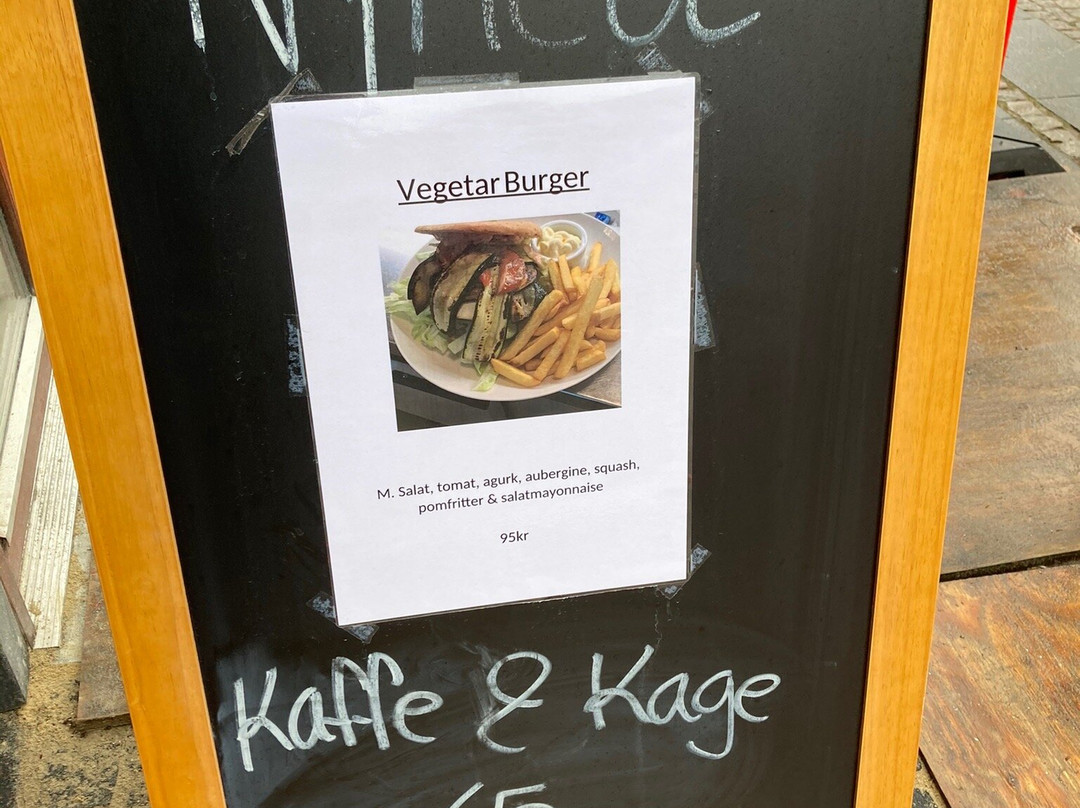 Nyhed
Vegetar Burger
M. Salat, tomat, agurk, aubergine, squash,
pomfritter & salatmayonnaise
95kr
Kaffe & Kage